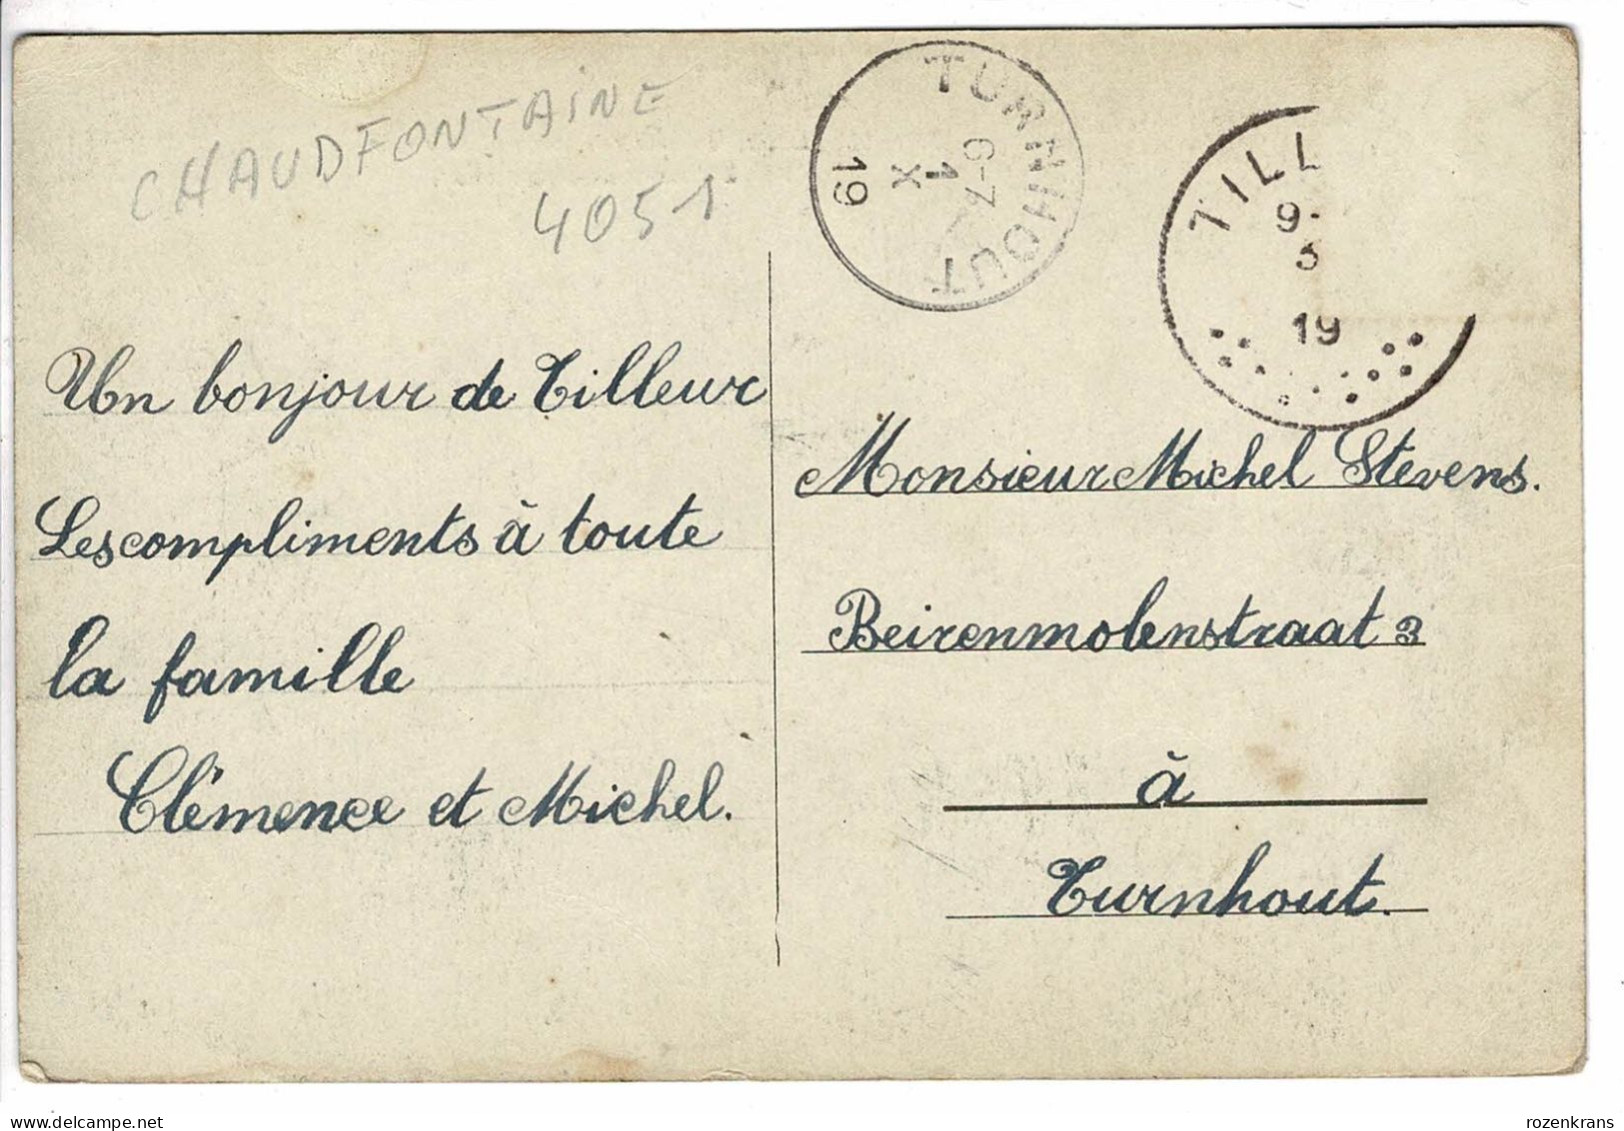 CHAUDFONTAINE
4051
TURNHOUT
6-7
1
X
19
TILL
9-
3
19
Un bonjour de Tilleur
Les compliments à toute
la famille
Clémence et Michel.
Monsieur Michel Stevens.
Beirenmolenstraat 3
à
Turnhout.
www.delcampe.net
rozenkrans